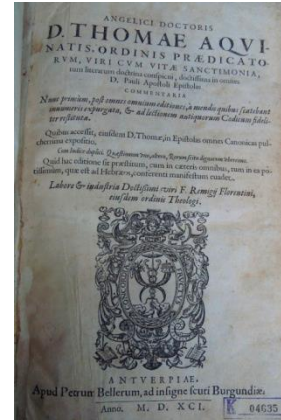 ANGELICI DOCTORIS
D. THOMAE AQVI-
NATIS. ORDINIS PRÆDICATO-
RVM, VIRI CVM VITÆ SANCTIMONIA,
tum literarum doctrina conspicui, doctissima in omnes
D. Pauli Apostoli Epistolas
COMMENTARIA
Nunc primum, post omnes omnium editiones, à mendis quibus scatebant
innumeris expurgata, & ad lectionem antiquorum Codicum fideli-
ter restituta.
Quibus accessit, eiusdem D. Thomæ, in Epistolas omnes Canonicas pul-
cherrima expositio.
Cum Indice duplici, Quæstionum vno, altero, Rerum scitu dignarum
Quid hac editione sit præstitum, cum in cæteris omnibus, tum in ea po-
tissimum, quæ est ad Hebræos, conferenti manifestum euadet.
Labore & industria Doctissimi viri F. Remigij Florentini,
eiusdem ordinis Theologi.
ANTVERPIAE,
Apud Petrum Bellerum, ad insigne scuti Burgundiæ.
Anno, M. D. XCI.
K 04635